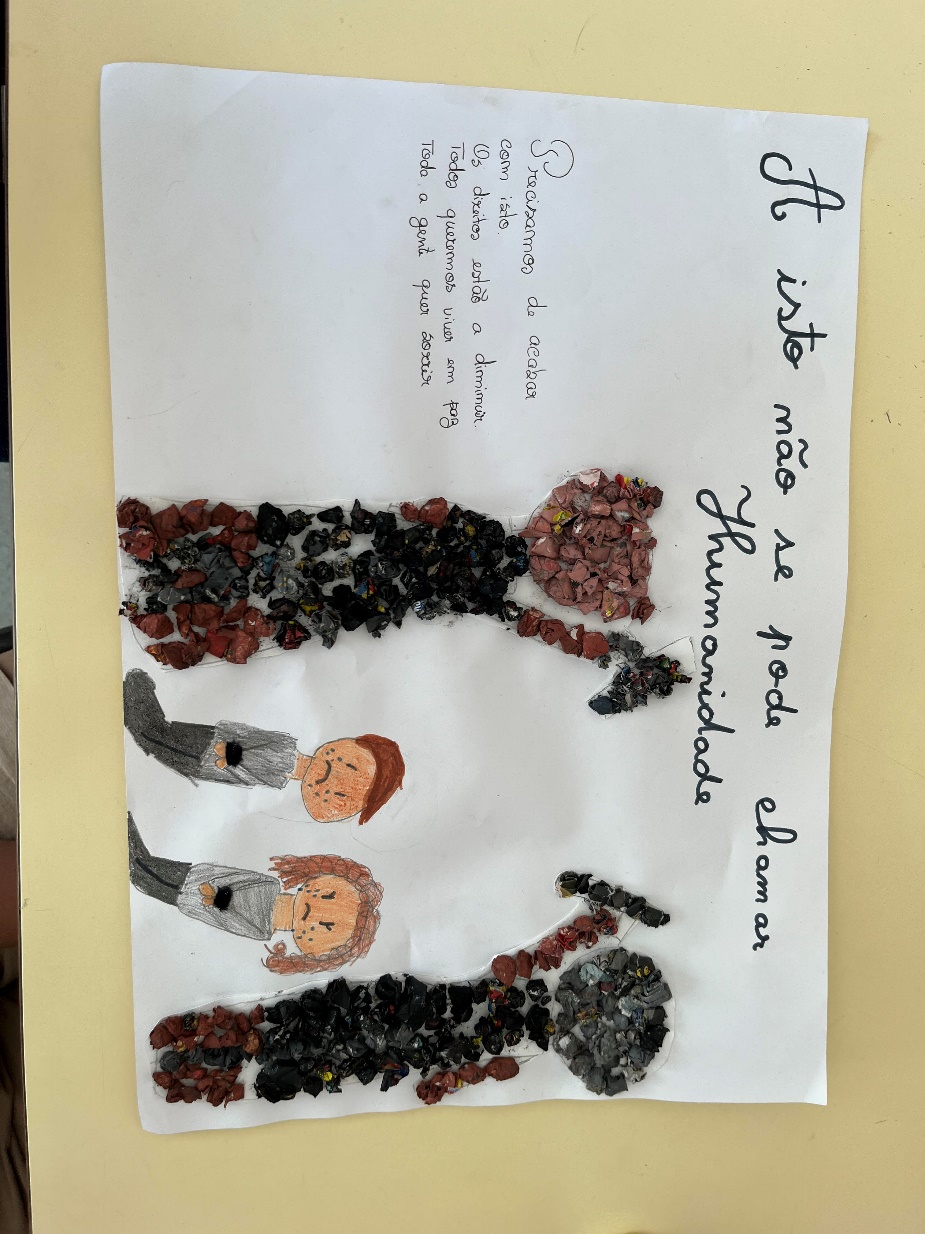 A isto não se pode chamar
Humanidade
Precisamos de acabar
com isto.
Os direitos estão a diminuir.
Todos queremos viver em paz
Toda a gente quer sorrir